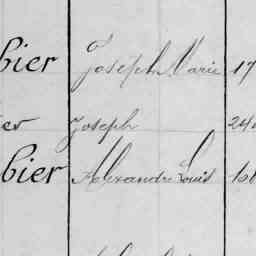 bier Joseph Marie 17
er Joseph 24
bier Alexandre Louis